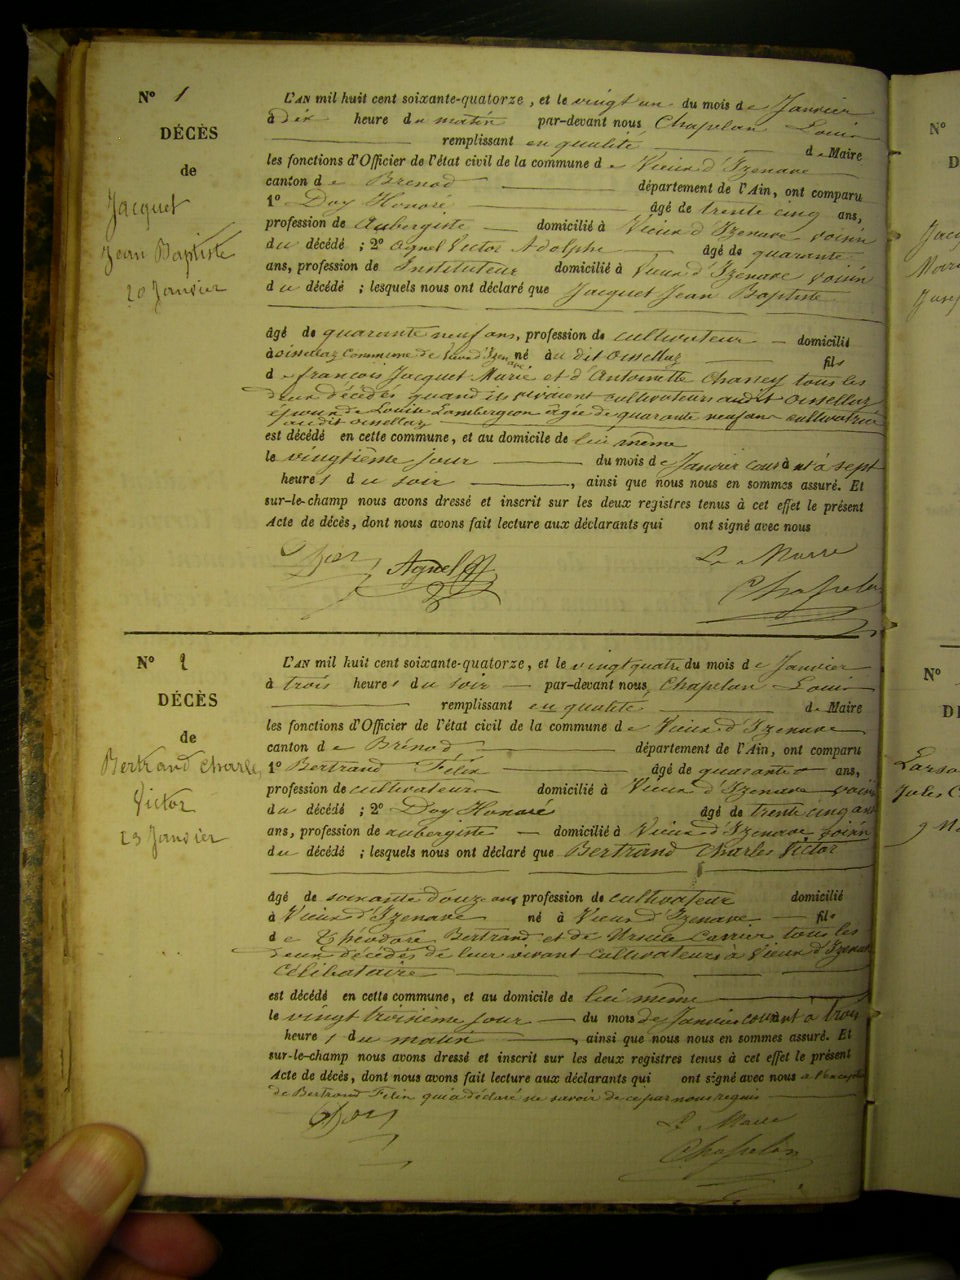 N° 1
DÉCÈS
de
Jacquet
Jean Baptiste
20 Janvier
L'AN mil huit cent soixante-quatorze, et le vingt un du mois de Janvier
à Dix heure du matin par-devant nous Chapelan Louis
remplissant en qualité de Maire
les fonctions d'Officier de l'état civil de la commune de Vieux d'Izenave
canton de Brenod département de l'Ain, ont comparu
1° Doy Honoré âgé de trente cinq ans,
profession de Aubergiste domicilié à Vieux d'Izenave voisin
du décédé ; 2° Agnel Victor Adolphe âgé de quarante
ans, profession de Instituteur domicilié à Vieux d'Izenave voisin
du décédé ; lesquels nous ont déclaré que Jacquet Jean Baptiste
âgé de quarante neuf ans, profession de cultivateur domicilié
à Oisellaz commune de Vieux d'Izenave né au dit Oisellaz fils
de françois Jacquet Marie et d'Antoinette Chassey tous les
deux décédés quand ils vivaient cultivateurs audit Oisellaz
époux de Louise Lambergeon agée de quarante neuf ans cultivatrice
audit oisellaz
est décédé en cette commune, et au domicile de lui même
le vingtième jour du mois de Janvier courant à sept
heures du soir , ainsi que nous nous en sommes assuré. Et
sur-le-champ nous avons dressé et inscrit sur les deux registres tenus à cet effet le présent
Acte de décès, dont nous avons fait lecture aux déclarants qui ont signé avec nous
Doy Agnel Le Maire
Chapelan
N° 2
DÉCÈS
de
Bertrand Charles
Victor
23 Janvier
L'AN mil huit cent soixante-quatorze, et le vingt quatre du mois de Janvier
à trois heures du soir par-devant nous Chapelan Louis
remplissant en qualité de Maire
les fonctions d'Officier de l'état civil de la commune de Vieux d'Izenave
canton de Brénod département de l'Ain, ont comparu
1° Bertrand Félix âgé de quarante ans,
profession de cultivateur domicilié à Vieux d'Izenave voisin
du décédé ; 2° Doy Honoré âgé de trente cinq ans
ans, profession de aubergiste domicilié à Vieux d'Izenave voisin
du décédé ; lesquels nous ont déclaré que Bertrand Charles Victor
âgé de soixante douze ans profession de cultivateur domicilié
à Vieux d'Izenave né à Vieux d'Izenave fils
de Théodore Bertrand et de Ursule Carrier tous les
deux décédés de leur vivant cultivateurs à Vieux d'Izenave
célibataire
est décédé en cette commune, et au domicile de lui même
le vingt troisième jour du mois de Janvier courant à trois
heures du matin , ainsi que nous nous en sommes assuré. Et
sur-le-champ nous avons dressé et inscrit sur les deux registres tenus à cet effet le présent
Acte de décès, dont nous avons fait lecture aux déclarants qui ont signé avec nous à l'exception
de Bertrand Félix qui a déclaré ne savoir de ce par nous requis
Doy Le Maire
Chapelan
N°
N°